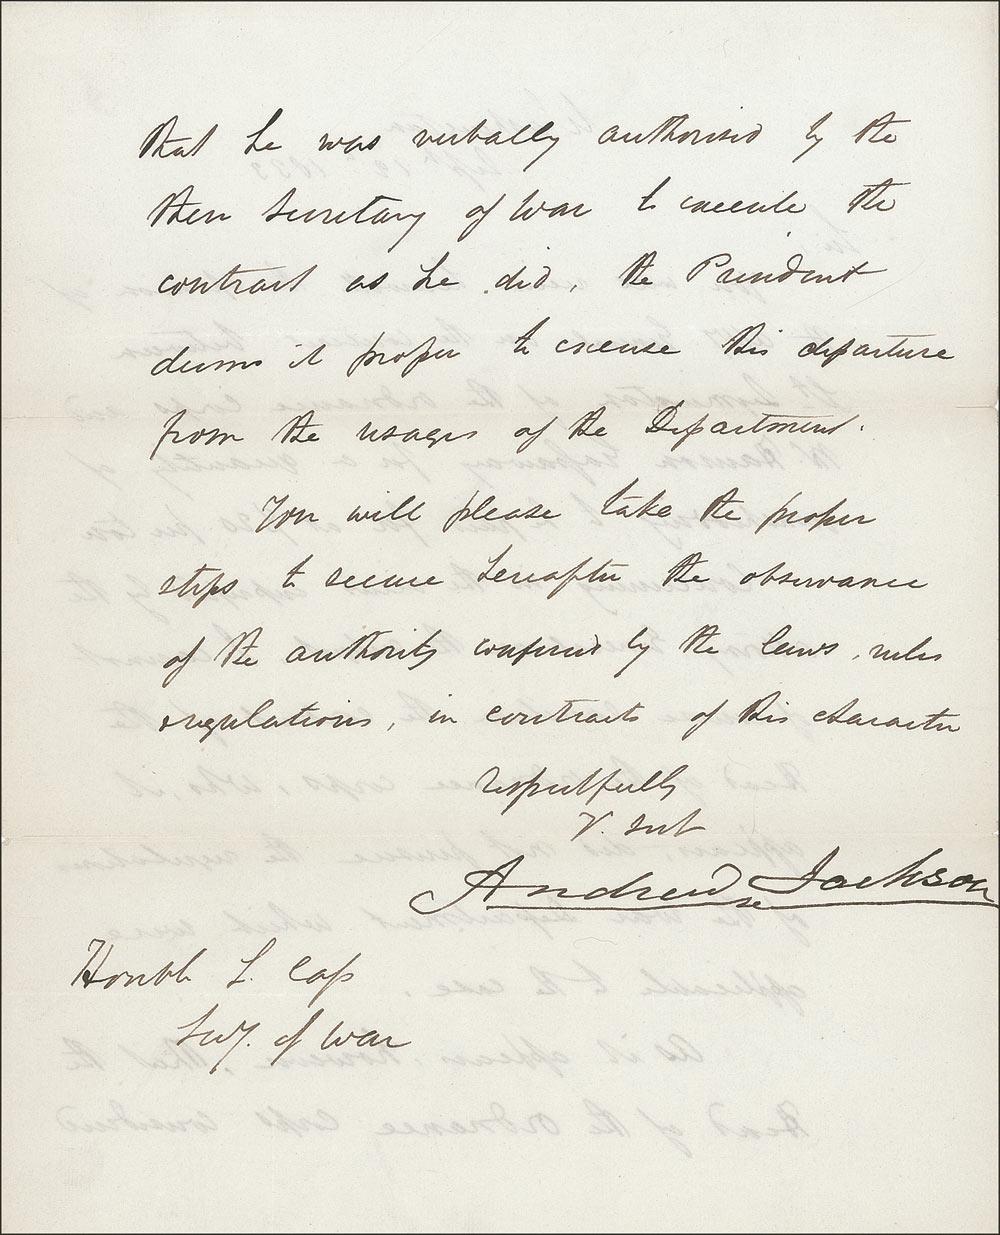 that he was verbally authorised by the
then Secretary of War to execute the
contract as he did, the President
deems it proper to excuse this departure
from the usages of the Department.
You will please take the proper
steps to secure hereafter the observance
of the authority conferred by the laws, rules
& regulations, in contracts of this character
respectfully
Y. svt
Andrew Jackson
Honble L. Cass
Secy. of War